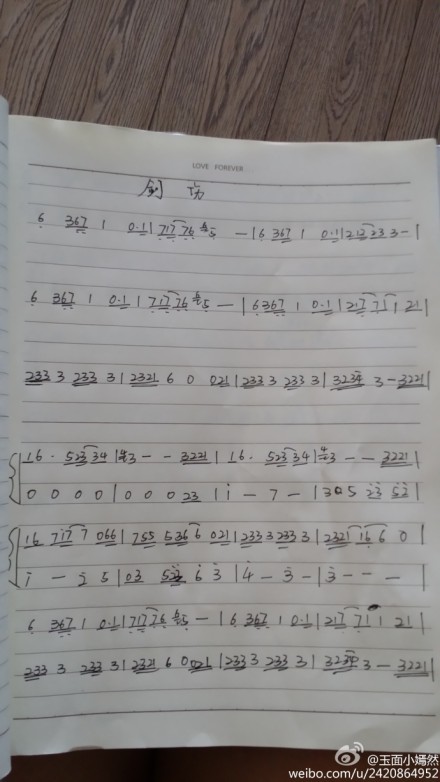 LOVE FOREVER
剑伤
6 367 1 0·1 | 717 76 6/5 — | 6 367 1 0·1 | 212 23 3 — |
6 367 1 0·1 | 717 76 6/5 — | 6 367 1 0·1 | 217 71 1 21 |
233 3 233 3 | 2321 6 0 021 | 233 3 233 3 | 3234 3 — 3221 |
16· 523 34 | 4/3 — — 3221 | 16· 523 34 | 4/3 — — 3221 |
0 0 0 0 | 0 0 0 23 | i — 7 — | 3 0 5 23 52 |
16 717 7 066 | 755 536 6 021 | 233 3 233 3 | 2321 16 6 0 |
i — 2 5 | 03 52 6 3 | 4 — 3 — | 3 — — — |
6 367 1 0·1 | 717 76 6/5 — | 6 367 1 0·1 | 217 71 1 21 |
233 3 233 3 | 2321 6 0 021 | 233 3 233 3 | 3234 3 — 3221 |
@玉面小嫣然
weibo.com/u/2420864952